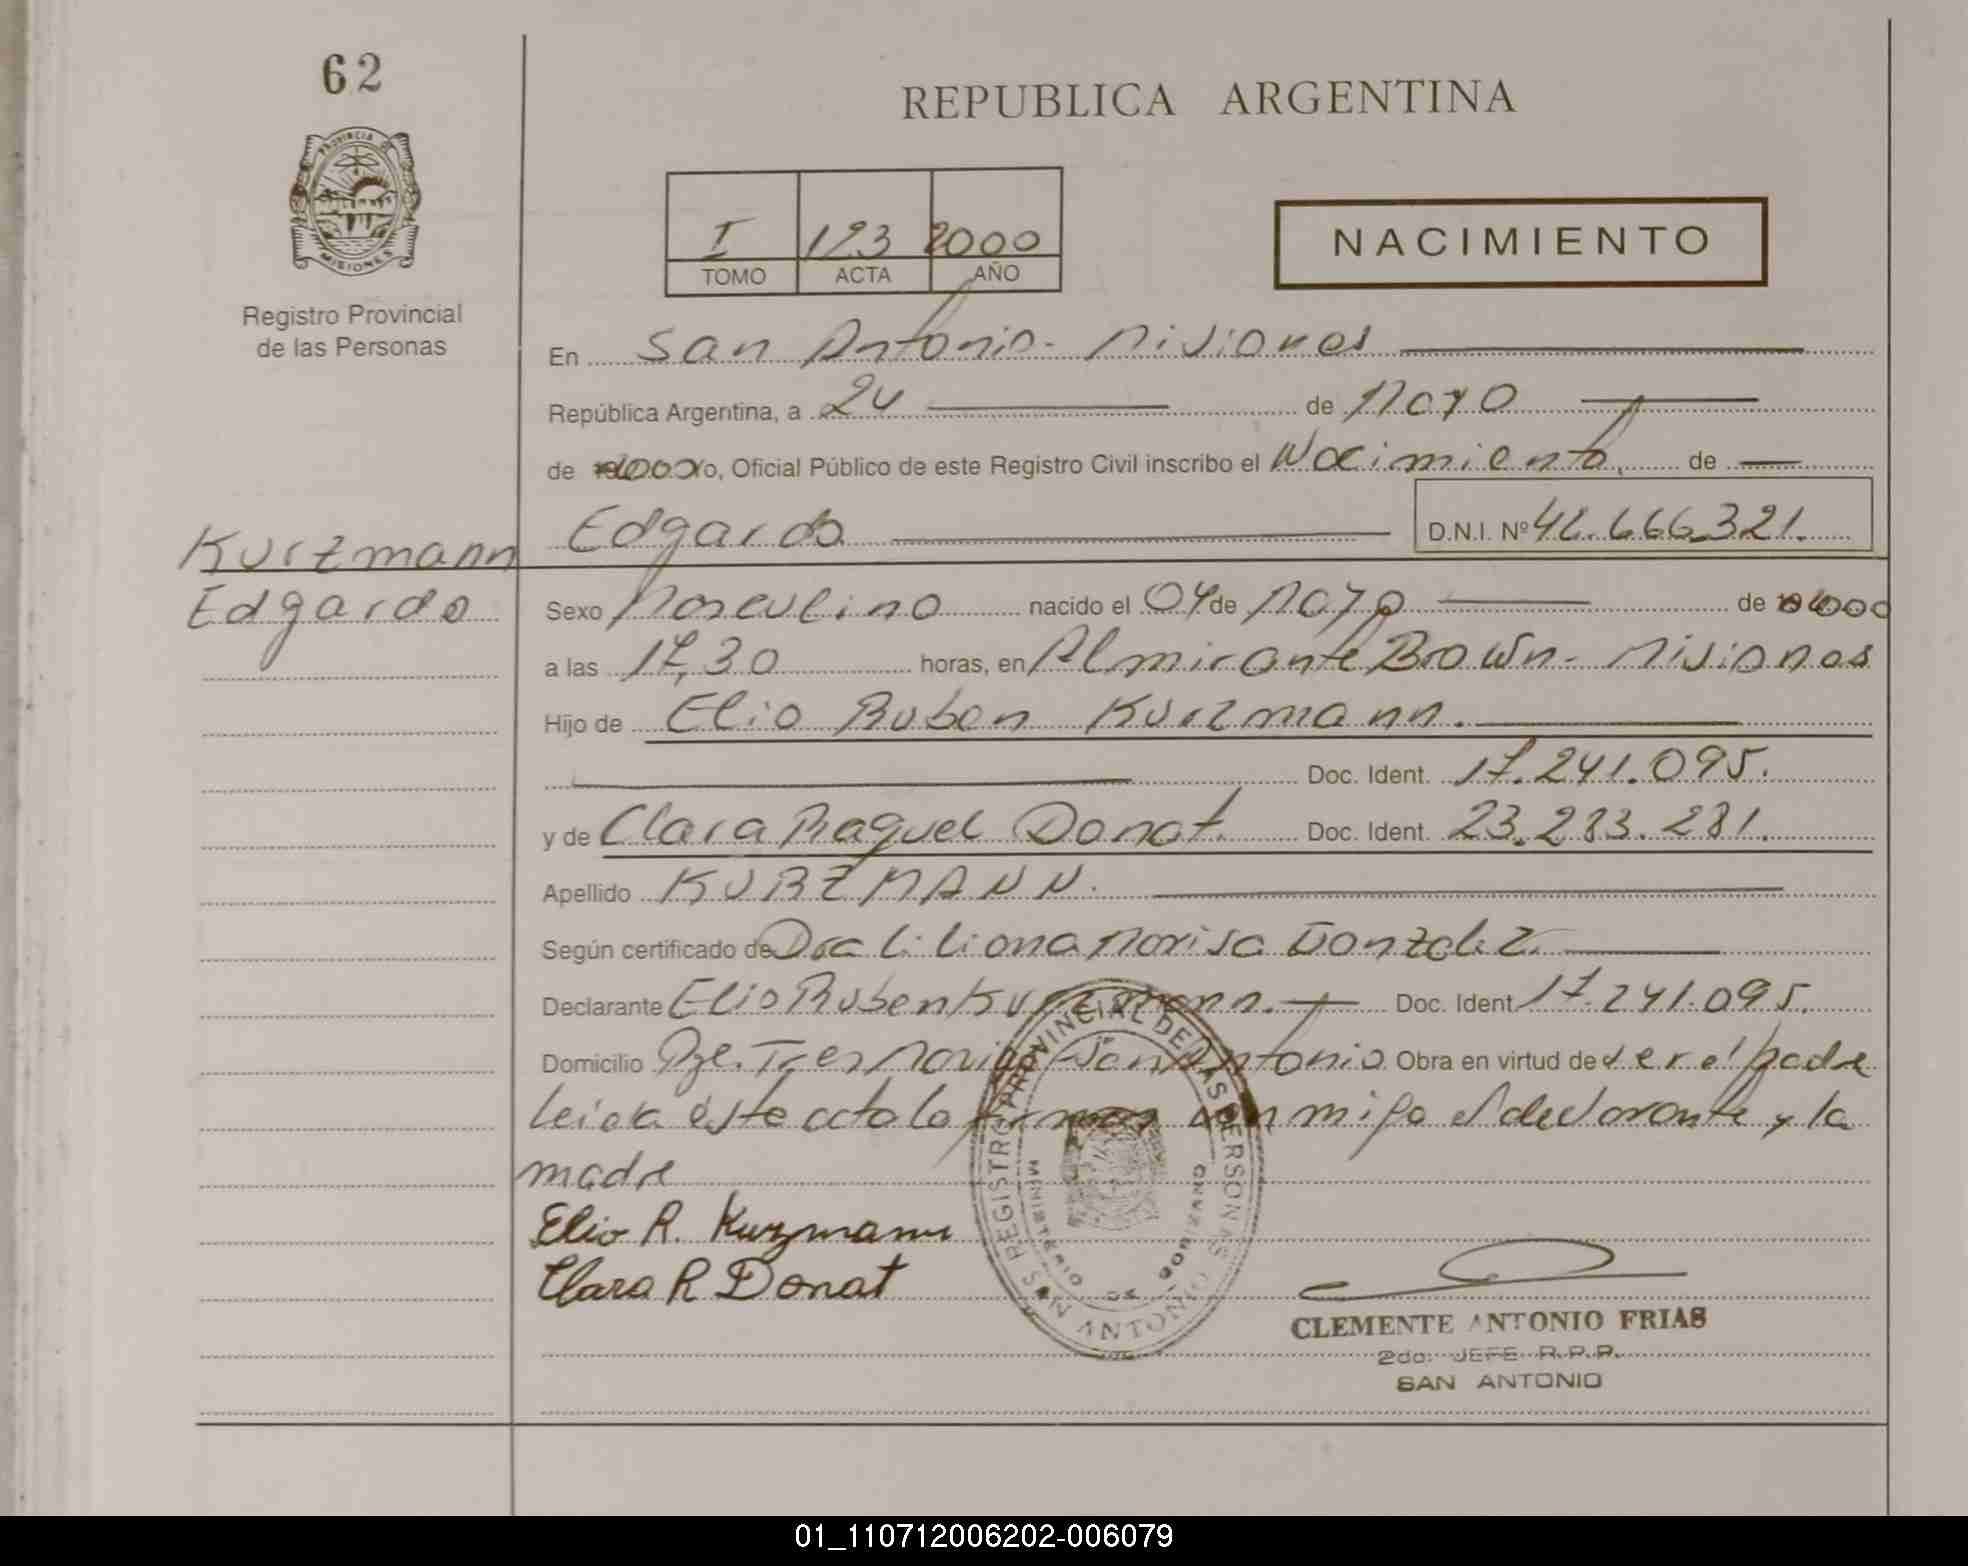 62
PROVINCIA DE
MISIONES
Registro Provincial
de las Personas
REPUBLICA ARGENTINA
I 123 2000
TOMO ACTA AÑO
NACIMIENTO
En San Antonio - Misiones
República Argentina, a 24 de Mayo
de 2000 Yo, Oficial Público de este Registro Civil inscribo el Nacimiento, de
Kurzmann
Edgardo
Edgardo D.N.I. Nº 666.321.
Sexo Masculino nacido el 04 de Mayo de 2000
a las 17,30 horas, en Almirante Brown - Misiones
Hijo de Elio Ruben Kurzmann.
Doc. Ident. 17.241.095.
y de Clara Raquel Donat. Doc. Ident. 23.283.281.
Apellido KURZMANN.
Según certificado de Dra Liliana Marisa Gonzalez.
Declarante Elio Ruben Kurzmann. Doc. Ident 17.241.095.
Domicilio Pje. Tres Marias - San Antonio Obra en virtud de ser el padre
leida este acta la firman conmigo el declarante y la
madre
Elio R. Kurzmann
Clara R Donat
REGISTRO PROVINCIAL DE LAS PERSONAS
MINISTERIO DE GOBIERNO
SAN ANTONIO
CLEMENTE ANTONIO FRIAS
2do. JEFE R.P.P.
SAN ANTONIO
01_110712006202-006079